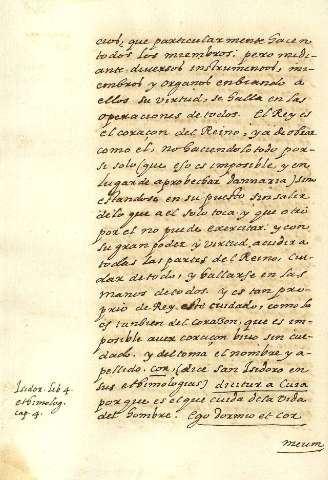 cios, que particularmente hacen
todos los miembros: pero medi-
ante diversos instrumentos, mi-
embros y organos enbiando a
ellos su virtud, se halla en las
operaciones de todos. El Rey es
el coraçon del Reino, y a de obrar
como el, no haciendolo todo por-
si solo (que eso es imposible, y en
lugar de aprobechar dannaria) sino
estandose en su puesto sin salir
de lo que a el solo toca, y que otro
por el no puede exercitar: y con
su gran poder y virtud, acudir a
todas las partes del Reino, cui-
dar de todo, y hallarse en las
manos de todos. y es tan pro-
prio de Rey este cuidado, como lo
es tanbien del corazon, que es im-
posible aver corazon bivo sin cui-
dado. y del toma el nombre y a-
pellido. cor, (dice san Isidoro en
sus ethimologias) dicitur a Cura
porque es el que cuida de la vida
del hombre. Ego dormio et cor
meum
Isidor. lib 4.
ethimolog.
cap. 4.